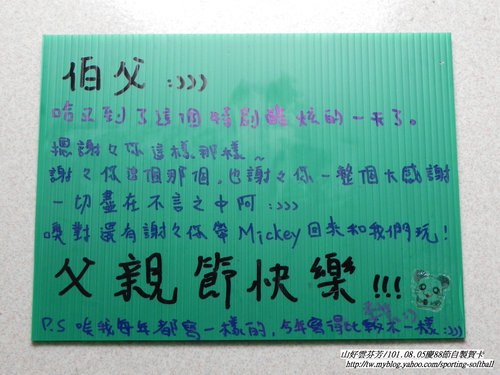 伯父 :))))
哈又到了這個特別酷炫的一天了。
總謝々你這樣那樣~
謝々你這個那個,也謝々你一整個大感謝
一切盡在不言之中阿 :))))
噢對還有謝々你帶Mickey回來和我們玩!
父親節快樂!!!
P.S 唉我每年都寫一樣的,今年寫得比較不一樣 :)))
山好雲芬芳/101.08.05慶88節自製賀卡
http://tw.myblog.yahoo.com/sporting-softball